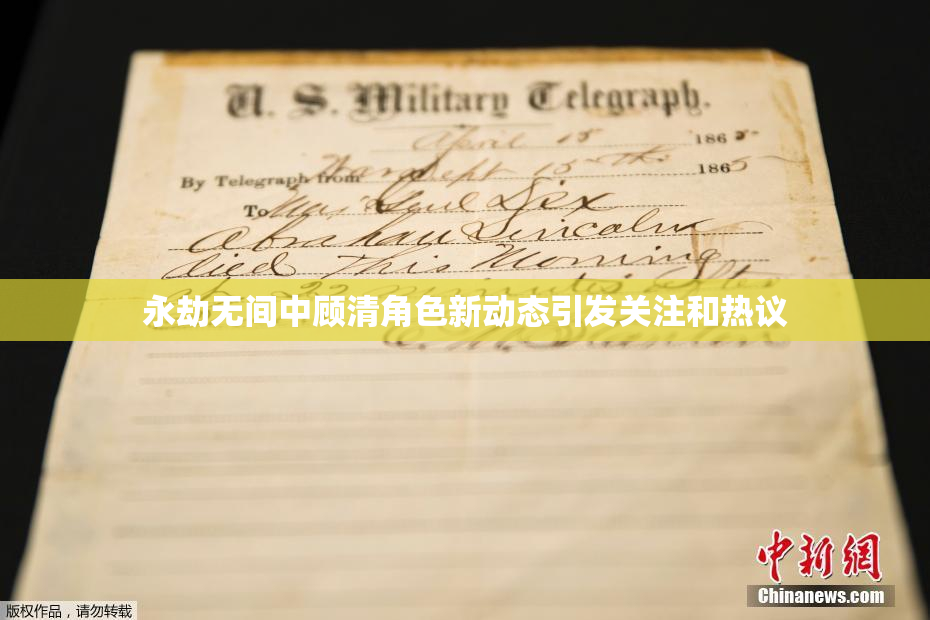 U. S. Military Telegraph.
April 15 1865
By Telegraph from War Dept 15th 1865
To Maj Genl Dix
Abraham Lincoln
died This Morning
at 22 minutes after
永劫无间中顾清角色新动态引发关注和热议
E. M. Stanton
中新網
Chinanews.com
版权作品，请勿转载